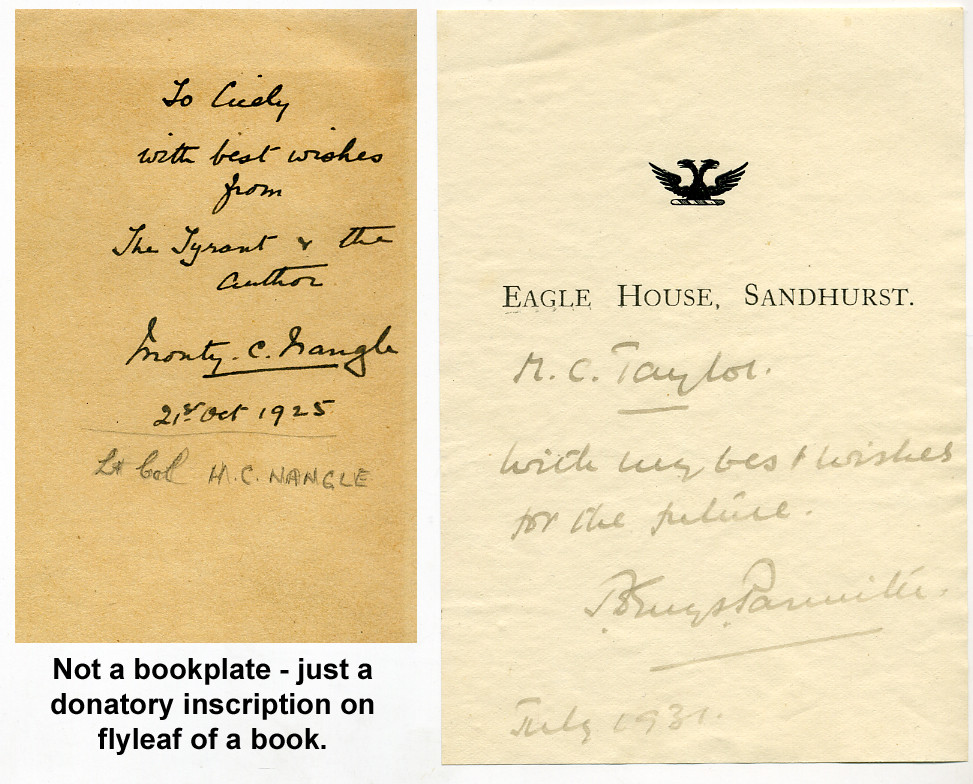 To Cicely
with best wishes
from
The Tyrant & the
author
Monty. C. Nangle
21st Oct 1925
Lt Col M.C. NANGLE
Not a bookplate - just a
donatory inscription on
flyleaf of a book.
EAGLE HOUSE, SANDHURST.
M. C. Taylor.
with my best wishes
for the future.
July 1931.